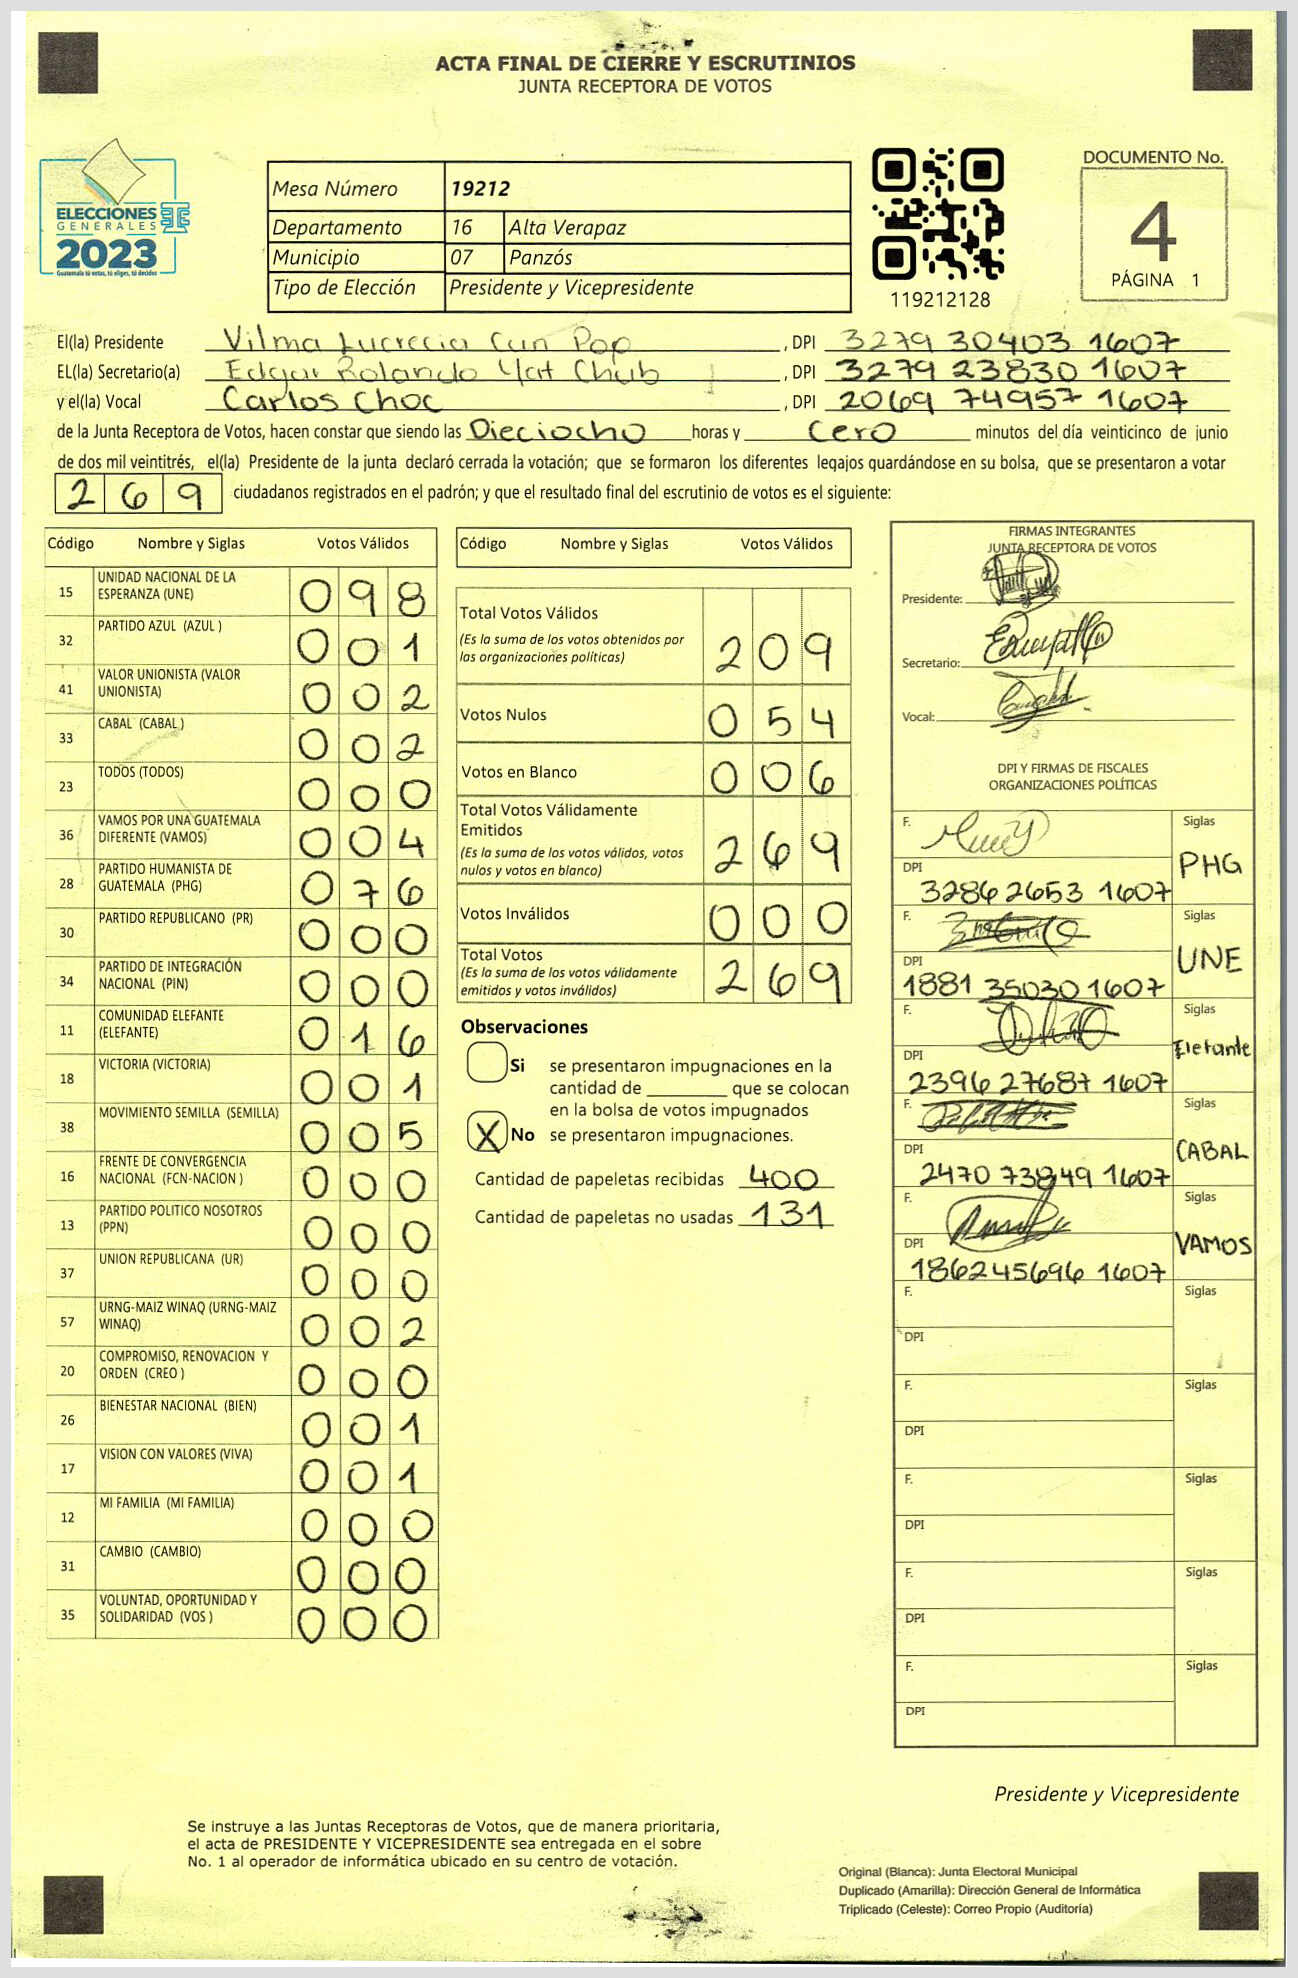 ACTA FINAL DE CIERRE Y ESCRUTINIOS
JUNTA RECEPTORA DE VOTOS
ELECCIONES
GENERALES
2023
Guatemala tú votas, tú eliges, tú decides
Mesa Número 19212
Departamento 16 Alta Verapaz
Municipio 07 Panzós
Tipo de Elección Presidente y Vicepresidente
119212128
DOCUMENTO No.
4
PÁGINA 1
El(la) Presidente Vilma Lucrecia Cun Pop, DPI 3279 30403 1607
EL(la) Secretario(a) Edgar Rolando Yat Chub, DPI 3279 23830 1607
y el(la) Vocal Carlos Choc, DPI 2069 74957 1607
de la Junta Receptora de Votos, hacen constar que siendo las Dieciocho horas y Cero minutos del día veinticinco de junio
de dos mil veintitrés, el(la) Presidente de la junta declaró cerrada la votación; que se formaron los diferentes legajos guardándose en su bolsa, que se presentaron a votar
269 ciudadanos registrados en el padrón; y que el resultado final del escrutinio de votos es el siguiente:
Código Nombre y Siglas Votos Válidos
15 UNIDAD NACIONAL DE LA ESPERANZA (UNE) 098
32 PARTIDO AZUL (AZUL ) 001
41 VALOR UNIONISTA (VALOR UNIONISTA) 002
33 CABAL (CABAL ) 002
23 TODOS (TODOS) 000
36 VAMOS POR UNA GUATEMALA DIFERENTE (VAMOS) 004
28 PARTIDO HUMANISTA DE GUATEMALA (PHG) 076
30 PARTIDO REPUBLICANO (PR) 000
34 PARTIDO DE INTEGRACIÓN NACIONAL (PIN) 000
11 COMUNIDAD ELEFANTE (ELEFANTE) 016
18 VICTORIA (VICTORIA) 001
38 MOVIMIENTO SEMILLA (SEMILLA) 005
16 FRENTE DE CONVERGENCIA NACIONAL (FCN-NACION ) 000
13 PARTIDO POLITICO NOSOTROS (PPN) 000
37 UNION REPUBLICANA (UR) 000
57 URNG-MAIZ WINAQ (URNG-MAIZ WINAQ) 002
20 COMPROMISO, RENOVACION Y ORDEN (CREO ) 000
26 BIENESTAR NACIONAL (BIEN) 001
17 VISION CON VALORES (VIVA) 001
12 MI FAMILIA (MI FAMILIA) 000
31 CAMBIO (CAMBIO) 000
35 VOLUNTAD, OPORTUNIDAD Y SOLIDARIDAD (VOS ) 000
Código Nombre y Siglas Votos Válidos
Total Votos Válidos 209
(Es la suma de los votos obtenidos por
las organizaciones políticas)
Votos Nulos 054
Votos en Blanco 006
Total Votos Válidamente
Emitidos 269
(Es la suma de los votos válidos, votos
nulos y votos en blanco)
Votos Inválidos 000
Total Votos 269
(Es la suma de los votos válidamente
emitidos y votos inválidos)
Observaciones
Si se presentaron impugnaciones en la
cantidad de ________ que se colocan
en la bolsa de votos impugnados
X No se presentaron impugnaciones.
Cantidad de papeletas recibidas 400
Cantidad de papeletas no usadas 131
FIRMAS INTEGRANTES
JUNTA RECEPTORA DE VOTOS
Presidente:
Secretario:
Vocal:
DPI Y FIRMAS DE FISCALES
ORGANIZACIONES POLÍTICAS
F. Siglas
PHG
DPI
3286 2653 1607
F. Siglas
UNE
DPI
1881 35030 1607
F. Siglas
Elefante
DPI
2396 27687 1607
F. Siglas
CABAL
DPI
2470 73849 1607
F. Siglas
VAMOS
DPI
186245696 1607
F. Siglas
DPI
F. Siglas
DPI
F. Siglas
DPI
F. Siglas
DPI
F. Siglas
DPI
Presidente y Vicepresidente
Se instruye a las Juntas Receptoras de Votos, que de manera prioritaria,
el acta de PRESIDENTE Y VICEPRESIDENTE sea entregada en el sobre
No. 1 al operador de informática ubicado en su centro de votación.
Original (Blanca): Junta Electoral Municipal
Duplicado (Amarilla): Dirección General de Informática
Triplicado (Celeste): Correo Propio (Auditoría)